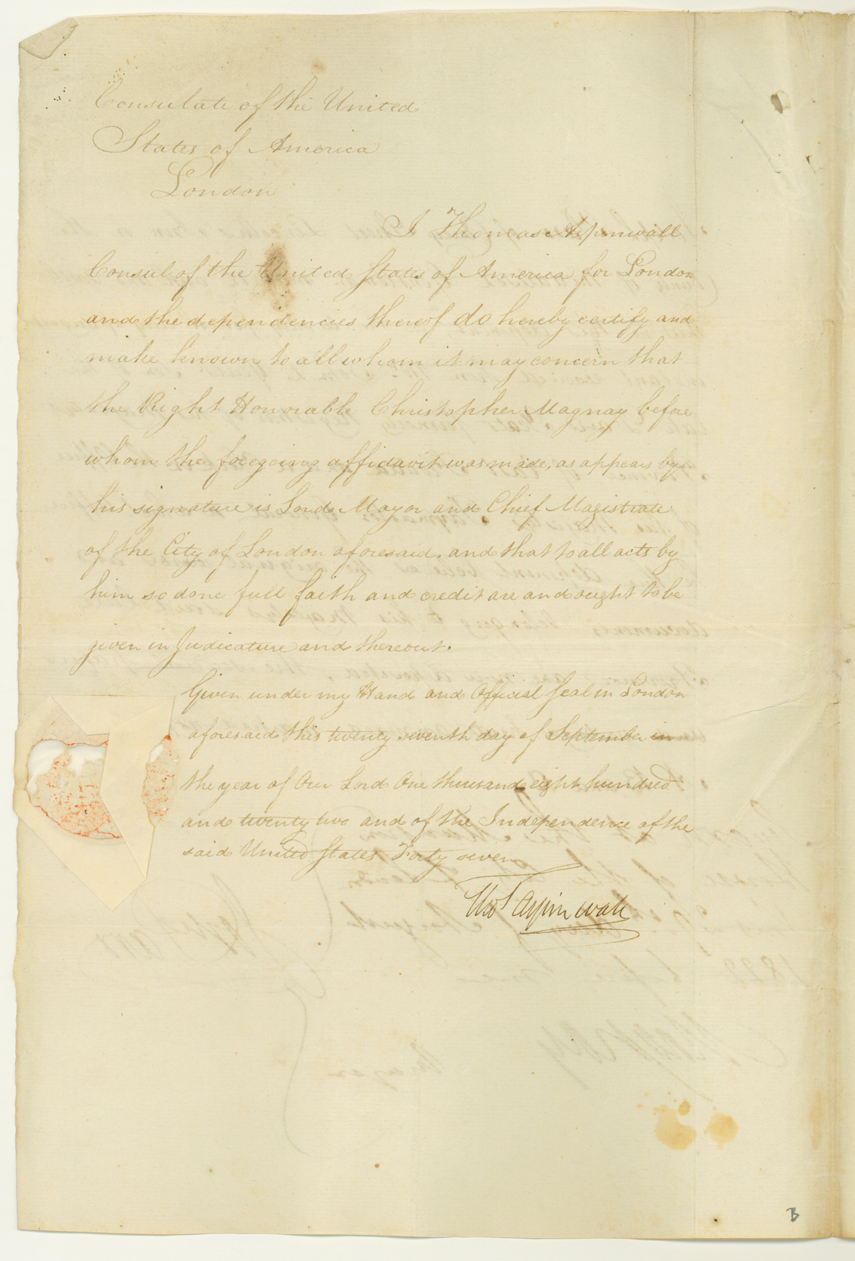 Consulate of the United
States of America
London
I Thomas Aspinwall
Consul of the United States of America for London
and the dependencies thereof do hereby certify and
make known to all whom it may concern that
the Right Honorable Christopher Magnay before
whom the foregoing affidavit was made, as appears by
his signature is Lord Mayor and Chief Magistrate
of the City of London aforesaid, and that to all acts by
him so done full faith and credit are and ought to be
given in Judicature and thereout.
Given under my Hand and Official Seal in London
aforesaid this twenty seventh day of September in
the year of Our Lord One thousand eight hundred
and twenty two and of the Independence of the
said United States Forty seven
Thos Aspinwall
B